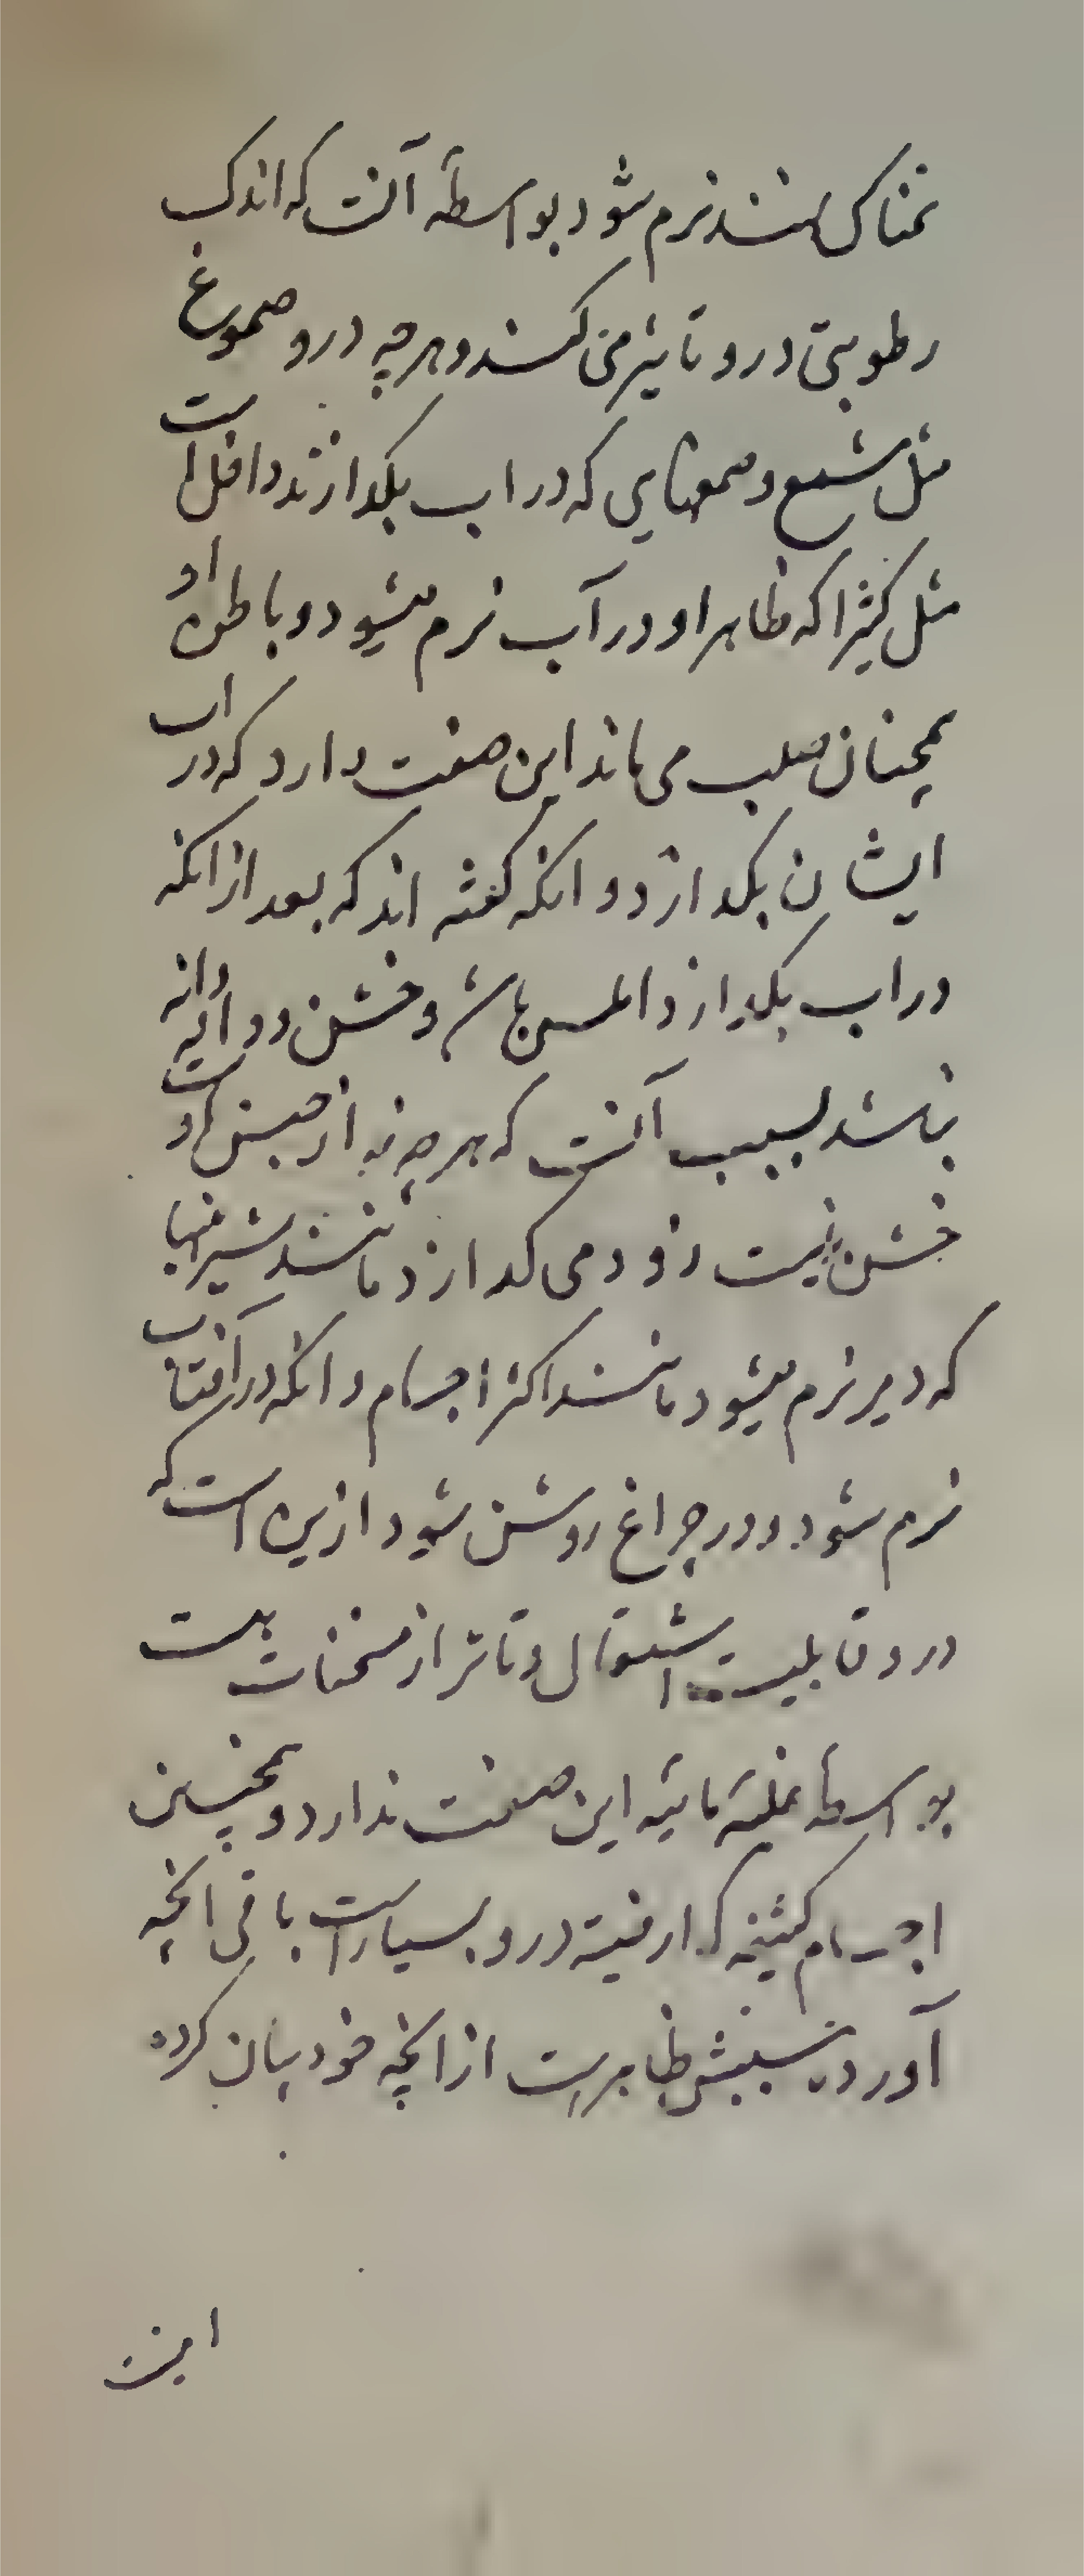 نمناک کنند نرم شود بواسطهٔ آنست که اندک
رطوبتی درو تاثیر می کند و هرچه درو صموغ
مثل شمع و صمغهایی که در اب بکدازند داخل است
مثل کثیرا که ظاهر او در آب نرم میشود و باطن او
همچنان صلب می ماند این صفت دارد که در اب
ایشان بکدازد و انکه کفته اند که بعد از انکه
در اب بکدازد املس باشد و خشن و دانه دانه
نباشد بسبب آنست که هرچه نه از جنس است و
خشن نیست زود می کدازد مانند شیرینها
که دیر نرم میشود مانند اکثر اجسام و انکه در آفتاب
نرم شود و در چراغ روشن شود ازین است که
درو قابلیت اشتعال و تاثر از مسخنات هست
بواسطهٔ غلبهٔ مائیه این صفت ندارد و همچنین
اجسام کثیفه که ارضیة درو بسیارست باقی انچه
آورد نسبتش ظاهرست از انچه خود بیان کرده
این